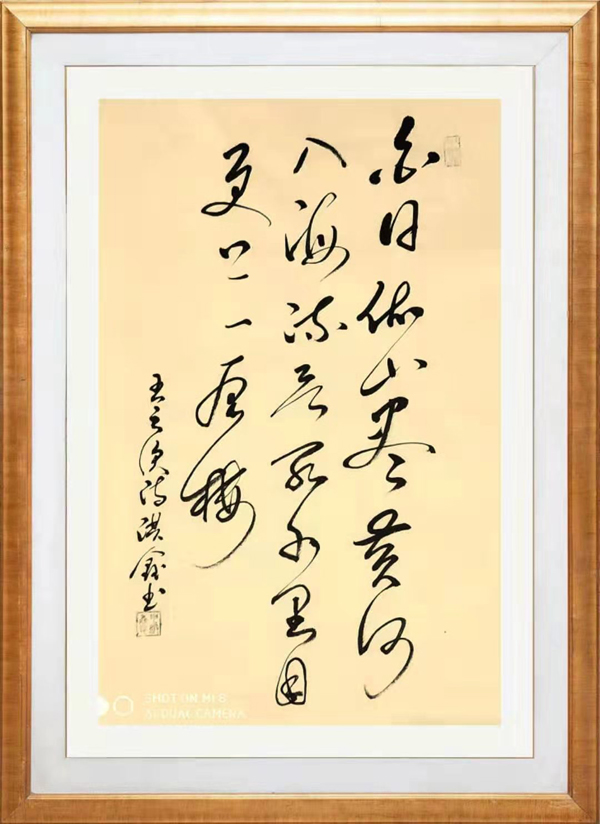 白日依山尽黄河
入海流欲穷千里目
更上一层楼
王之涣诗洪书
SHOT ON MI 6
DUAL CAMERA